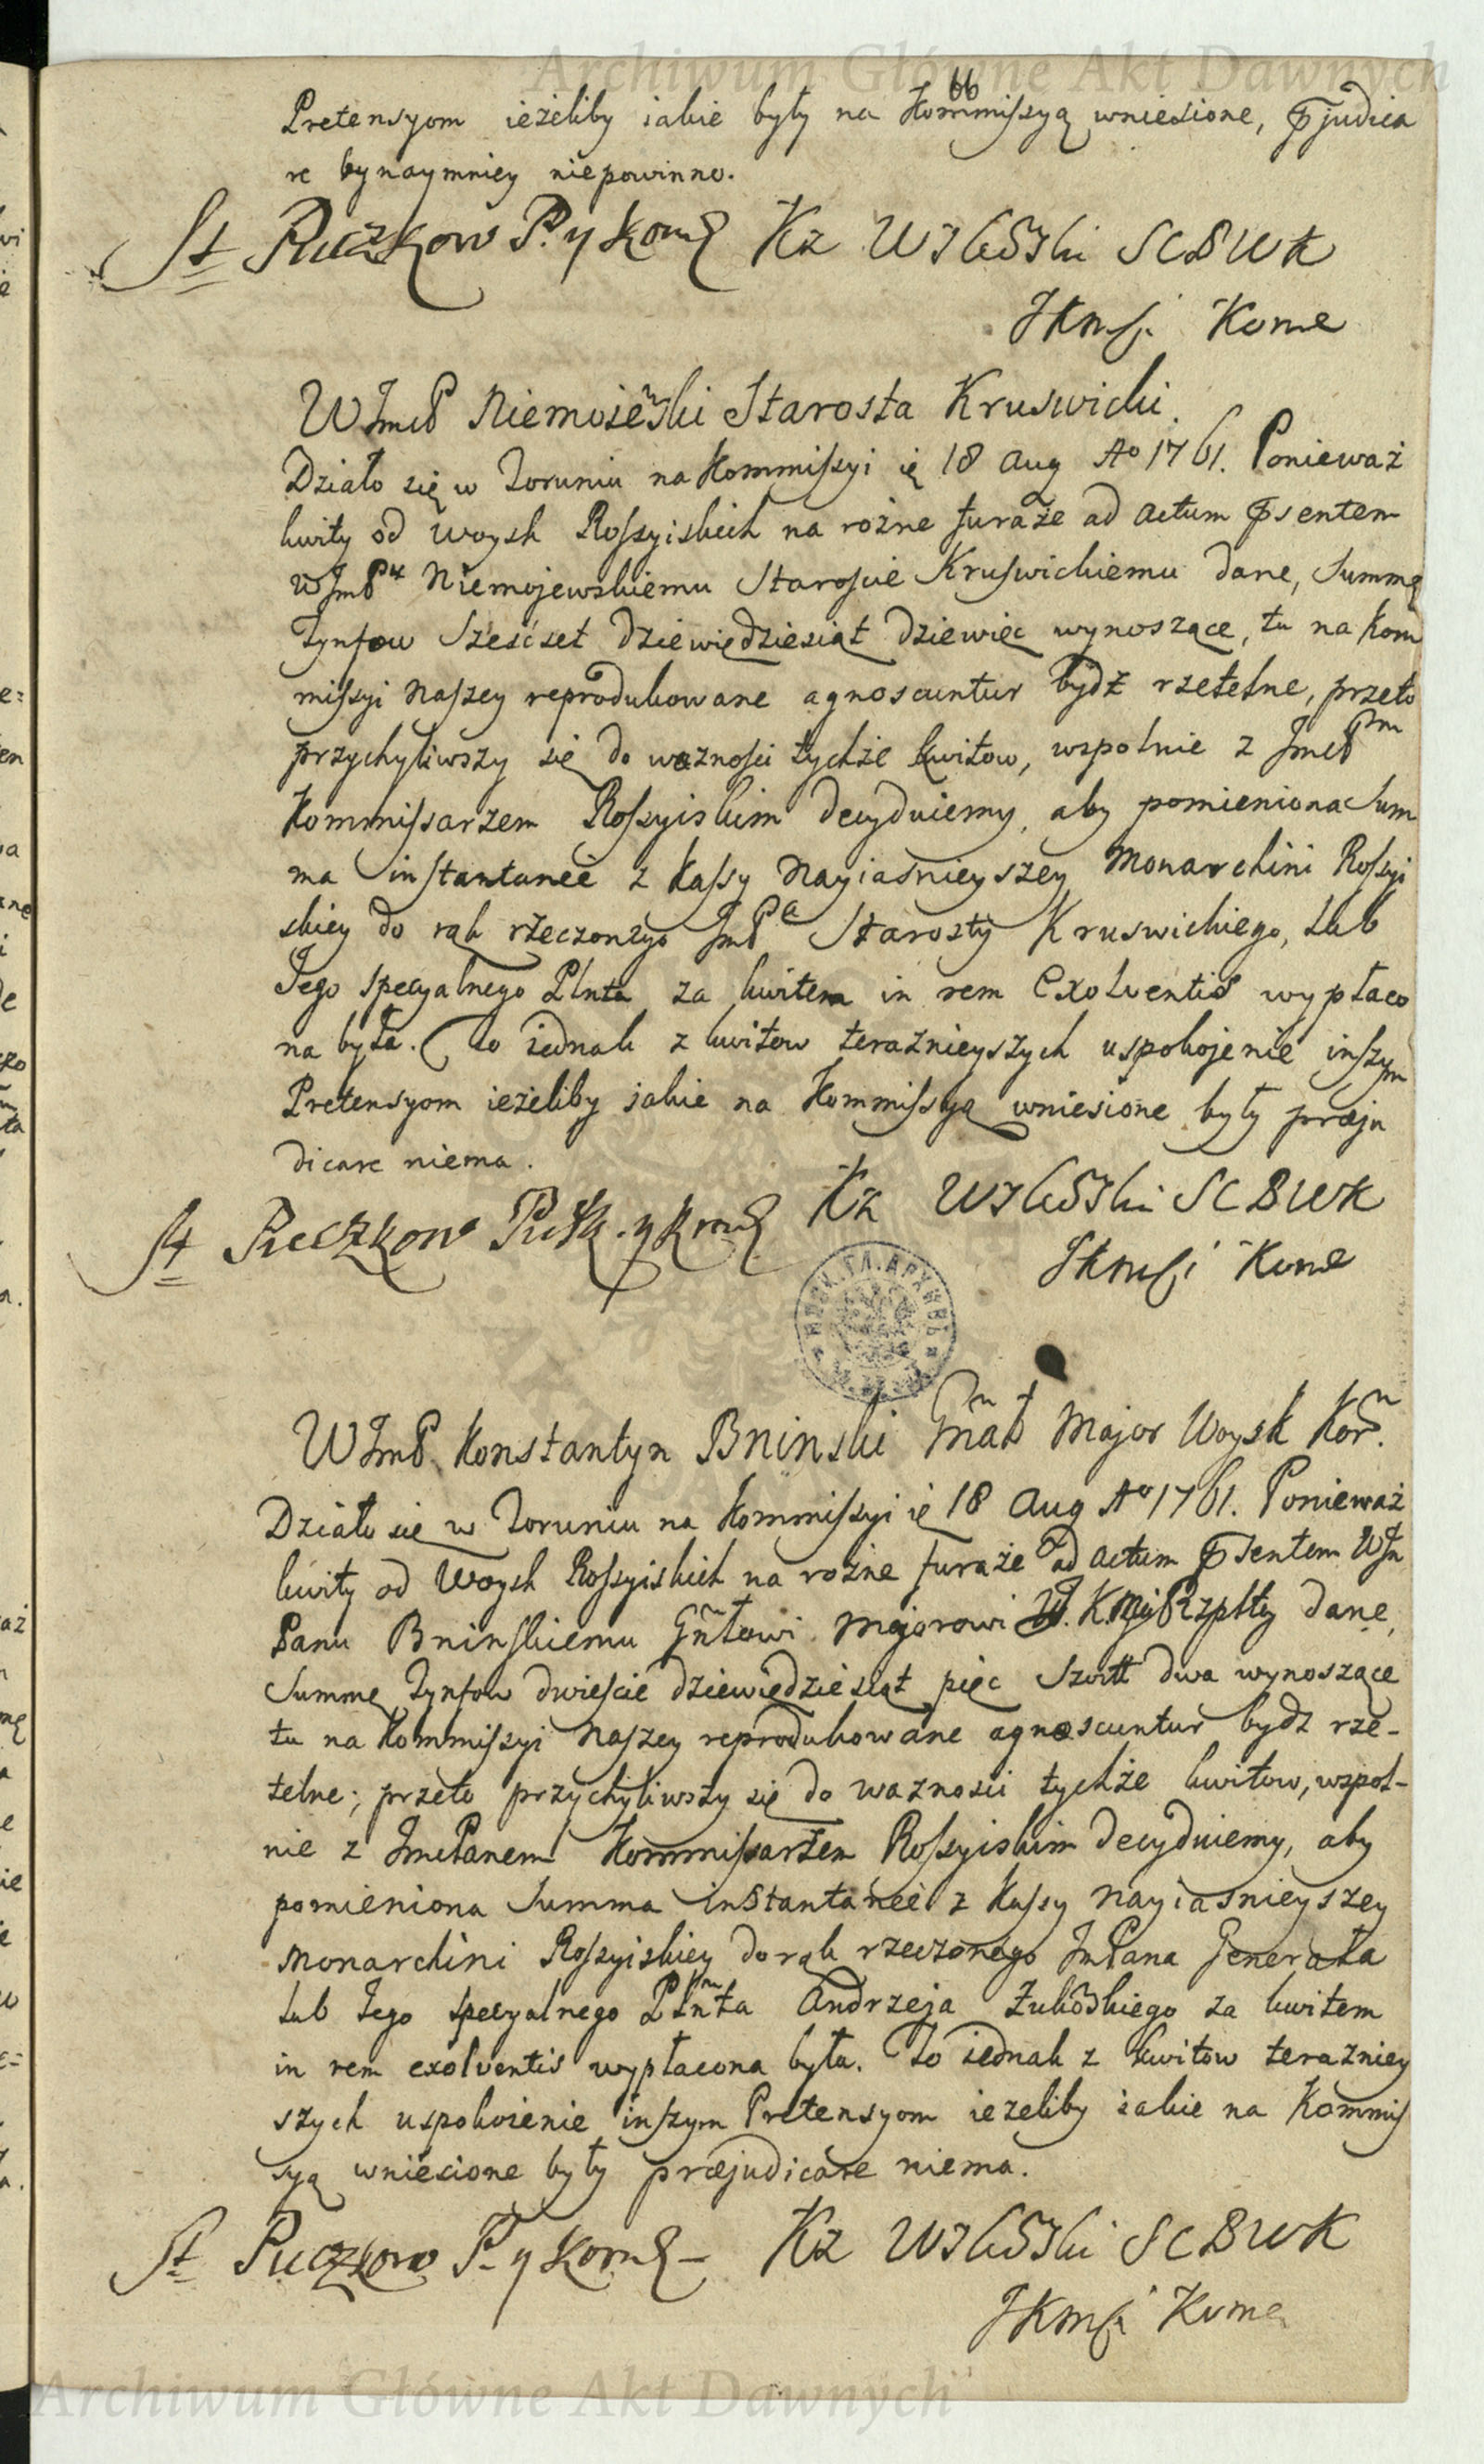 Archiwum Główne Akt Dawnych
66
Pretensyom ieżeliby iakie były na Kommissyą wniesione, pjudica
re bynaymniey niepowinno.
St Puczkow P. y Kom Kz Wilcz̄ski SCBWK
JKmsi Kome
WJmP Niemoiewski Starosta Kruswicki.
Działo się w Toruniu na Kommissyi ię 18 Aug Ao 1761. Ponieważ
kwity od Woysk Rossyiskich na rożne furaże ad actum psentem
WJmPu Niemojewskiemu Staroscie Kruswickiemu dane, Summę
Tynfow Sześćset dziewiędziesiąt dziewięc wynoszące, tu na Kom
missyi Naszey reprodukowane agnoscuntur bydź rzetelne, przeto
przychyliwszy się do waznosci tychże kwitow, wspolnie z JmcPm
Kommissarzem Rossyiskim decyduiemy, aby pomieniona Sum
ma instantanee z Kassy Nayiasnieyszey Monarchini Rossyi
skiey do rąk rzeczonego JmPa Starosty Kruswickiego, lub
Jego specyalnego Plnta za kwitem in rem Exolventis wypłaco
na była. To iednak z kwitow teraznieyszych uspokojenie inszym
Pretensyom ieżeliby iakie na Kommissyą wniesione były præju
dicare niema.
St Puczkow Pułk. y Kom Kz SCBWK
JKmsi Kome
МОСК. ГЛ. АРХИВЪ
WJmP. Konstantyn Bninski Gnał Major Woysk Kor.
Działo się w Toruniu na Kommissyi ię 18 Aug Ao 1761. Ponieważ
kwity od Woysk Rossyiskich na rożne furaże ad actum psentem WJm
Panu Bninskiemu Gnłowi Majorowi W. K. Rzplty dane,
Summę Tynfow dwieście dziewiędziesiąt pięc Szost dwa wynoszące
tu na Kommissyi Naszey reprodukowane agnoscuntur bydz rze-
telne; przeto przychyliwszy się do waznosci tychże kwitow, wspol-
nie z JmcPanem Kommissarzem Rossyiskim decyduiemy, aby
pomieniona Summa instantanee z Kassy Nayiasnieyszey
Monarchini Rossyiskiey do rąk rzeczonego JmPana Generała
lub Jego specyalnego Plnta Andrzeja Zukowskiego za kwitem
in rem exolventis wypłacona była. To iednak z kwitow terazniey
szych uspokoienie inszym Pretensyom ieżeliby iakie na Kommis
syą wniesione były præjudicare niema.
St Puczkow P- y Kom- Kz SCBWK
JKmsi Kome
Archiwum Główne Akt Dawnych